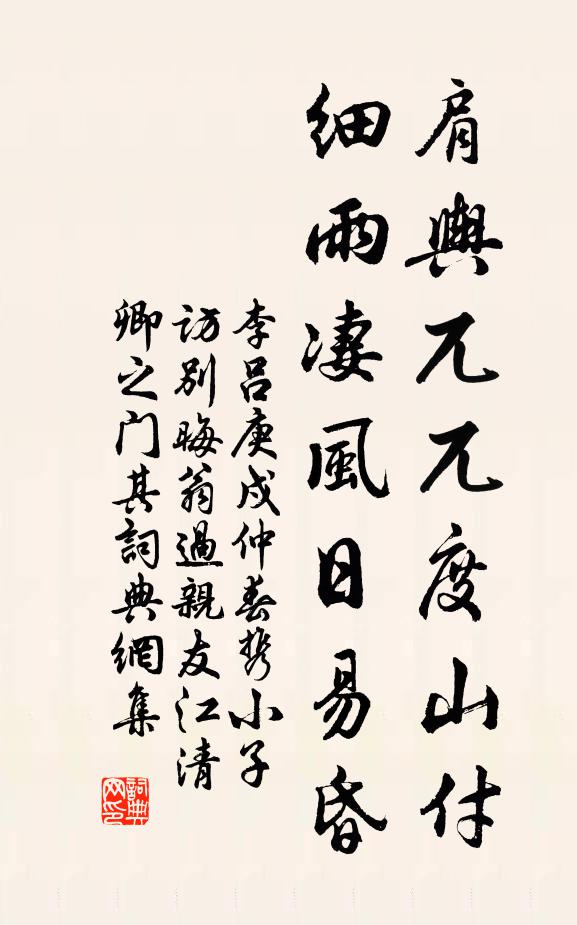 肩輿兀兀度山村
細雨凄風日易昏
李呂庚戌仲春携小子
訪別晦翁過親友江清
卿之門其詞典網集
詞典網印